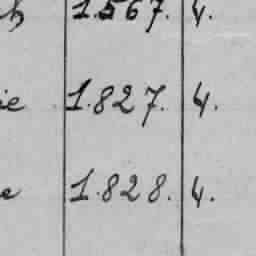 1.567. 4.
ie 1.827. 4.
e 1.828. 4.